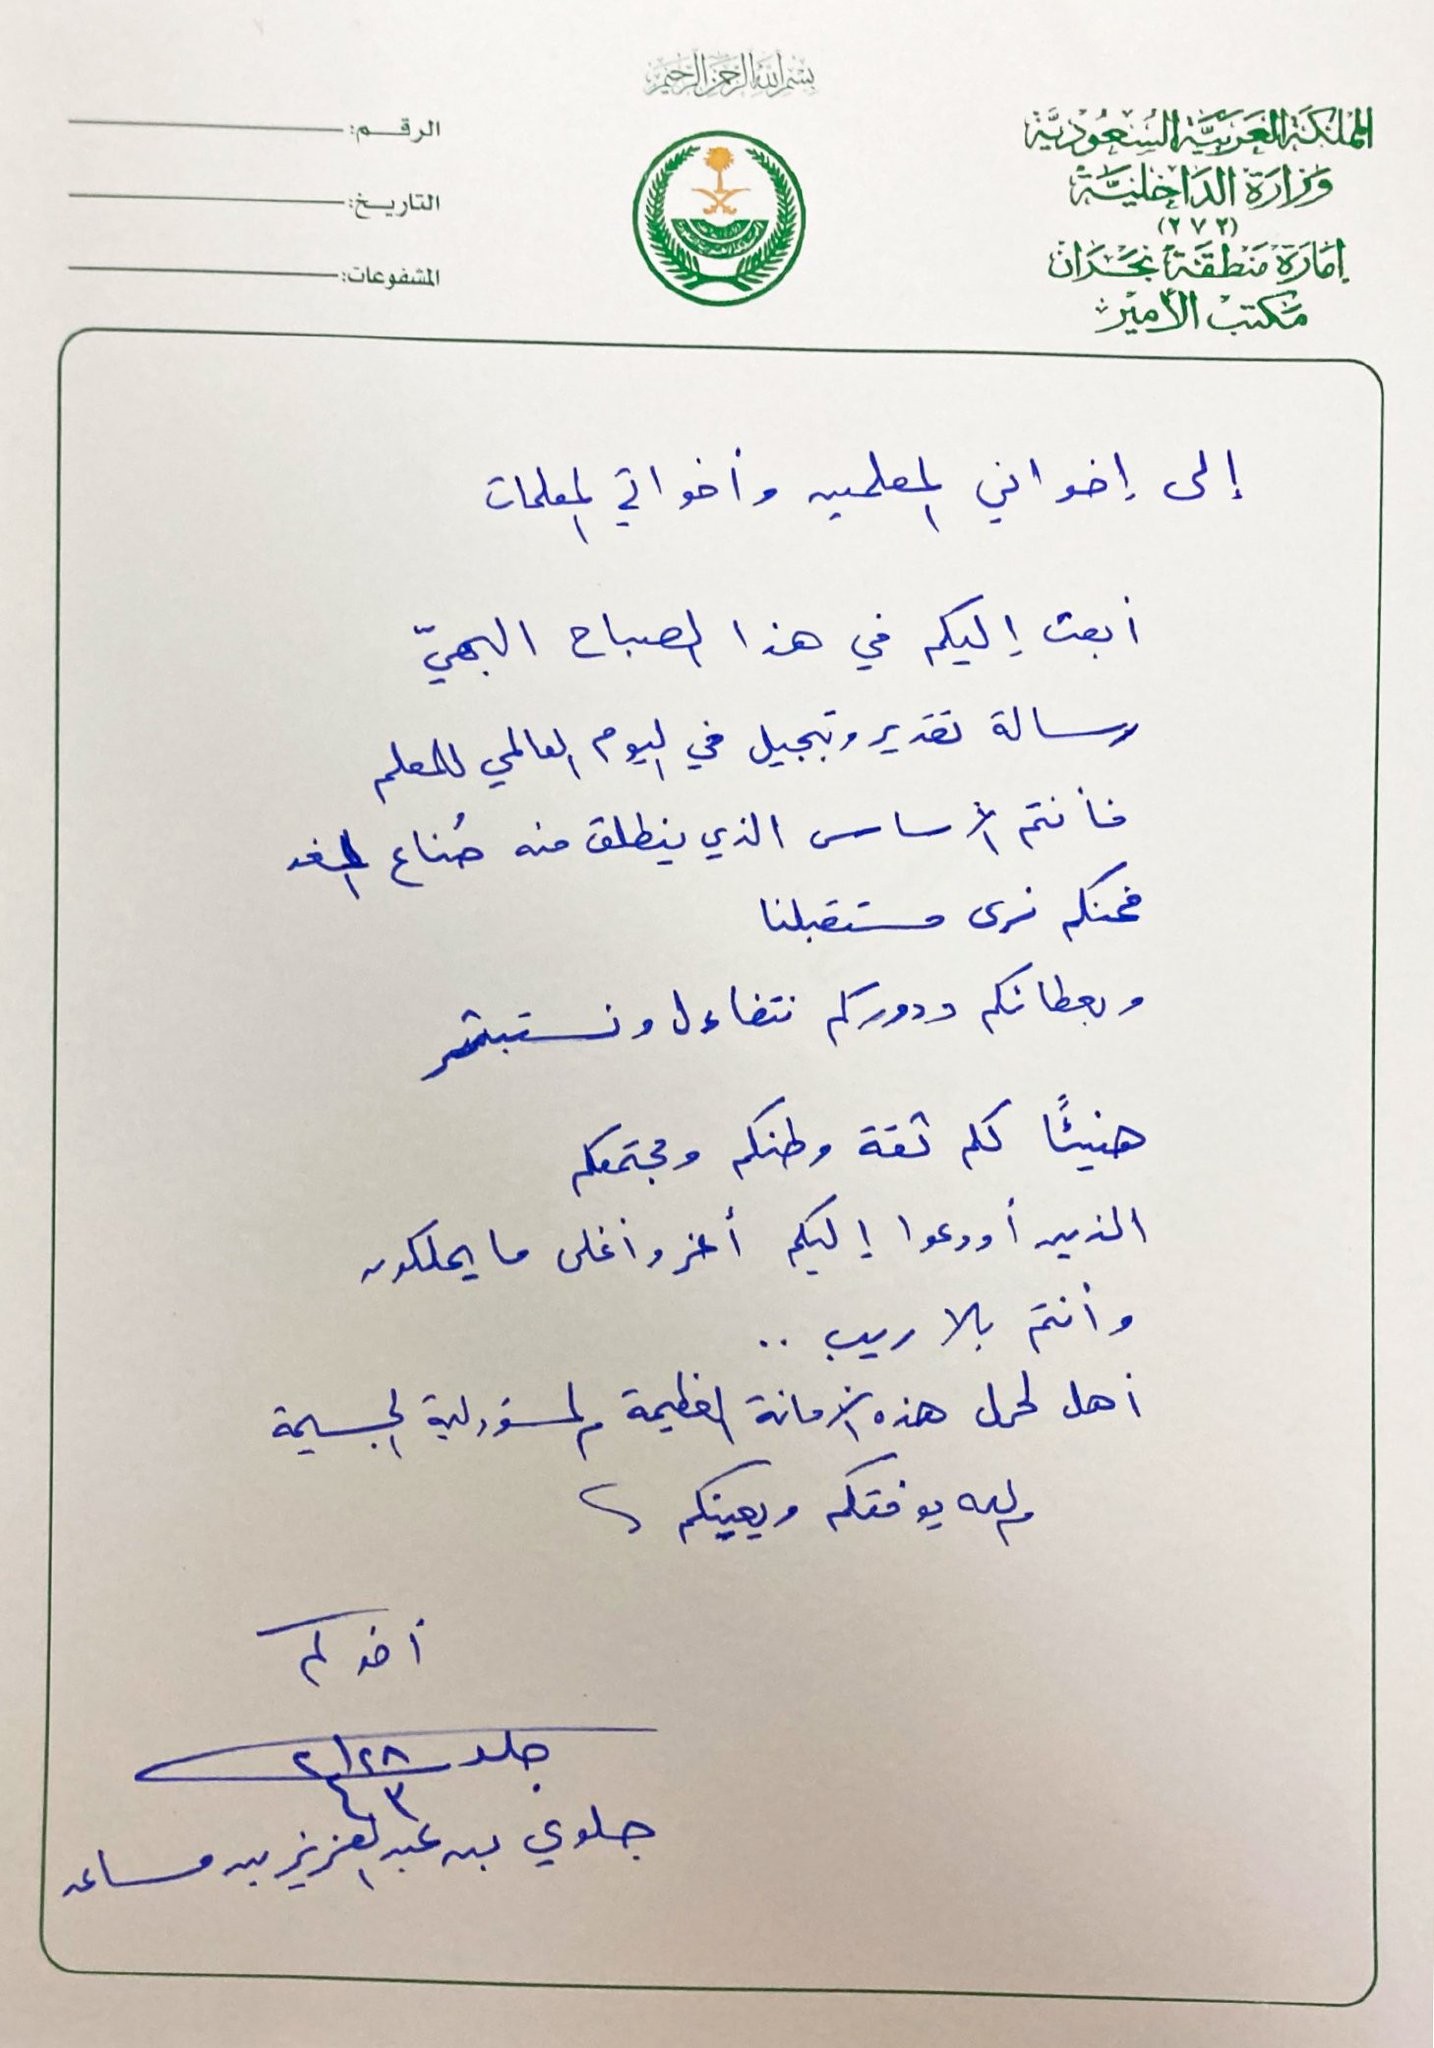 بسم الله الرحمن الرحيم
المملكة العربية السعودية
وزارة الداخلية
(٢٧٢)
إمارة منطقة نجران
مكتب الأمير
الرقـم:
التاريـخ:
المشفوعات:
إلى إخواني المعلمين وأخواتي المعلمات
أبعث إليكم في هذا الصباح البهيّ
رسالة تقدير وتبجيل في اليوم العالمي للمعلم
فأنتم الأساس الذي ينطلق منه صُناع الغد
فمنكم نرى مستقبلنا
وبعطائكم ودوركم نتفاءل ونستبشر
هنيئًا لكم ثقة وطنكم ومجتمعكم
الذين أودعوا إليكم أعز وأغلى ما يملكون
وأنتم بلا ريب ..
أهل لحمل هذه الأمانة العظيمة والمسؤولية الجسيمة
والله يوفقكم ويعينكم
أخوكم
٢/٢٨
٤٣
جلوي بن عبدالعزيز بن مساعد